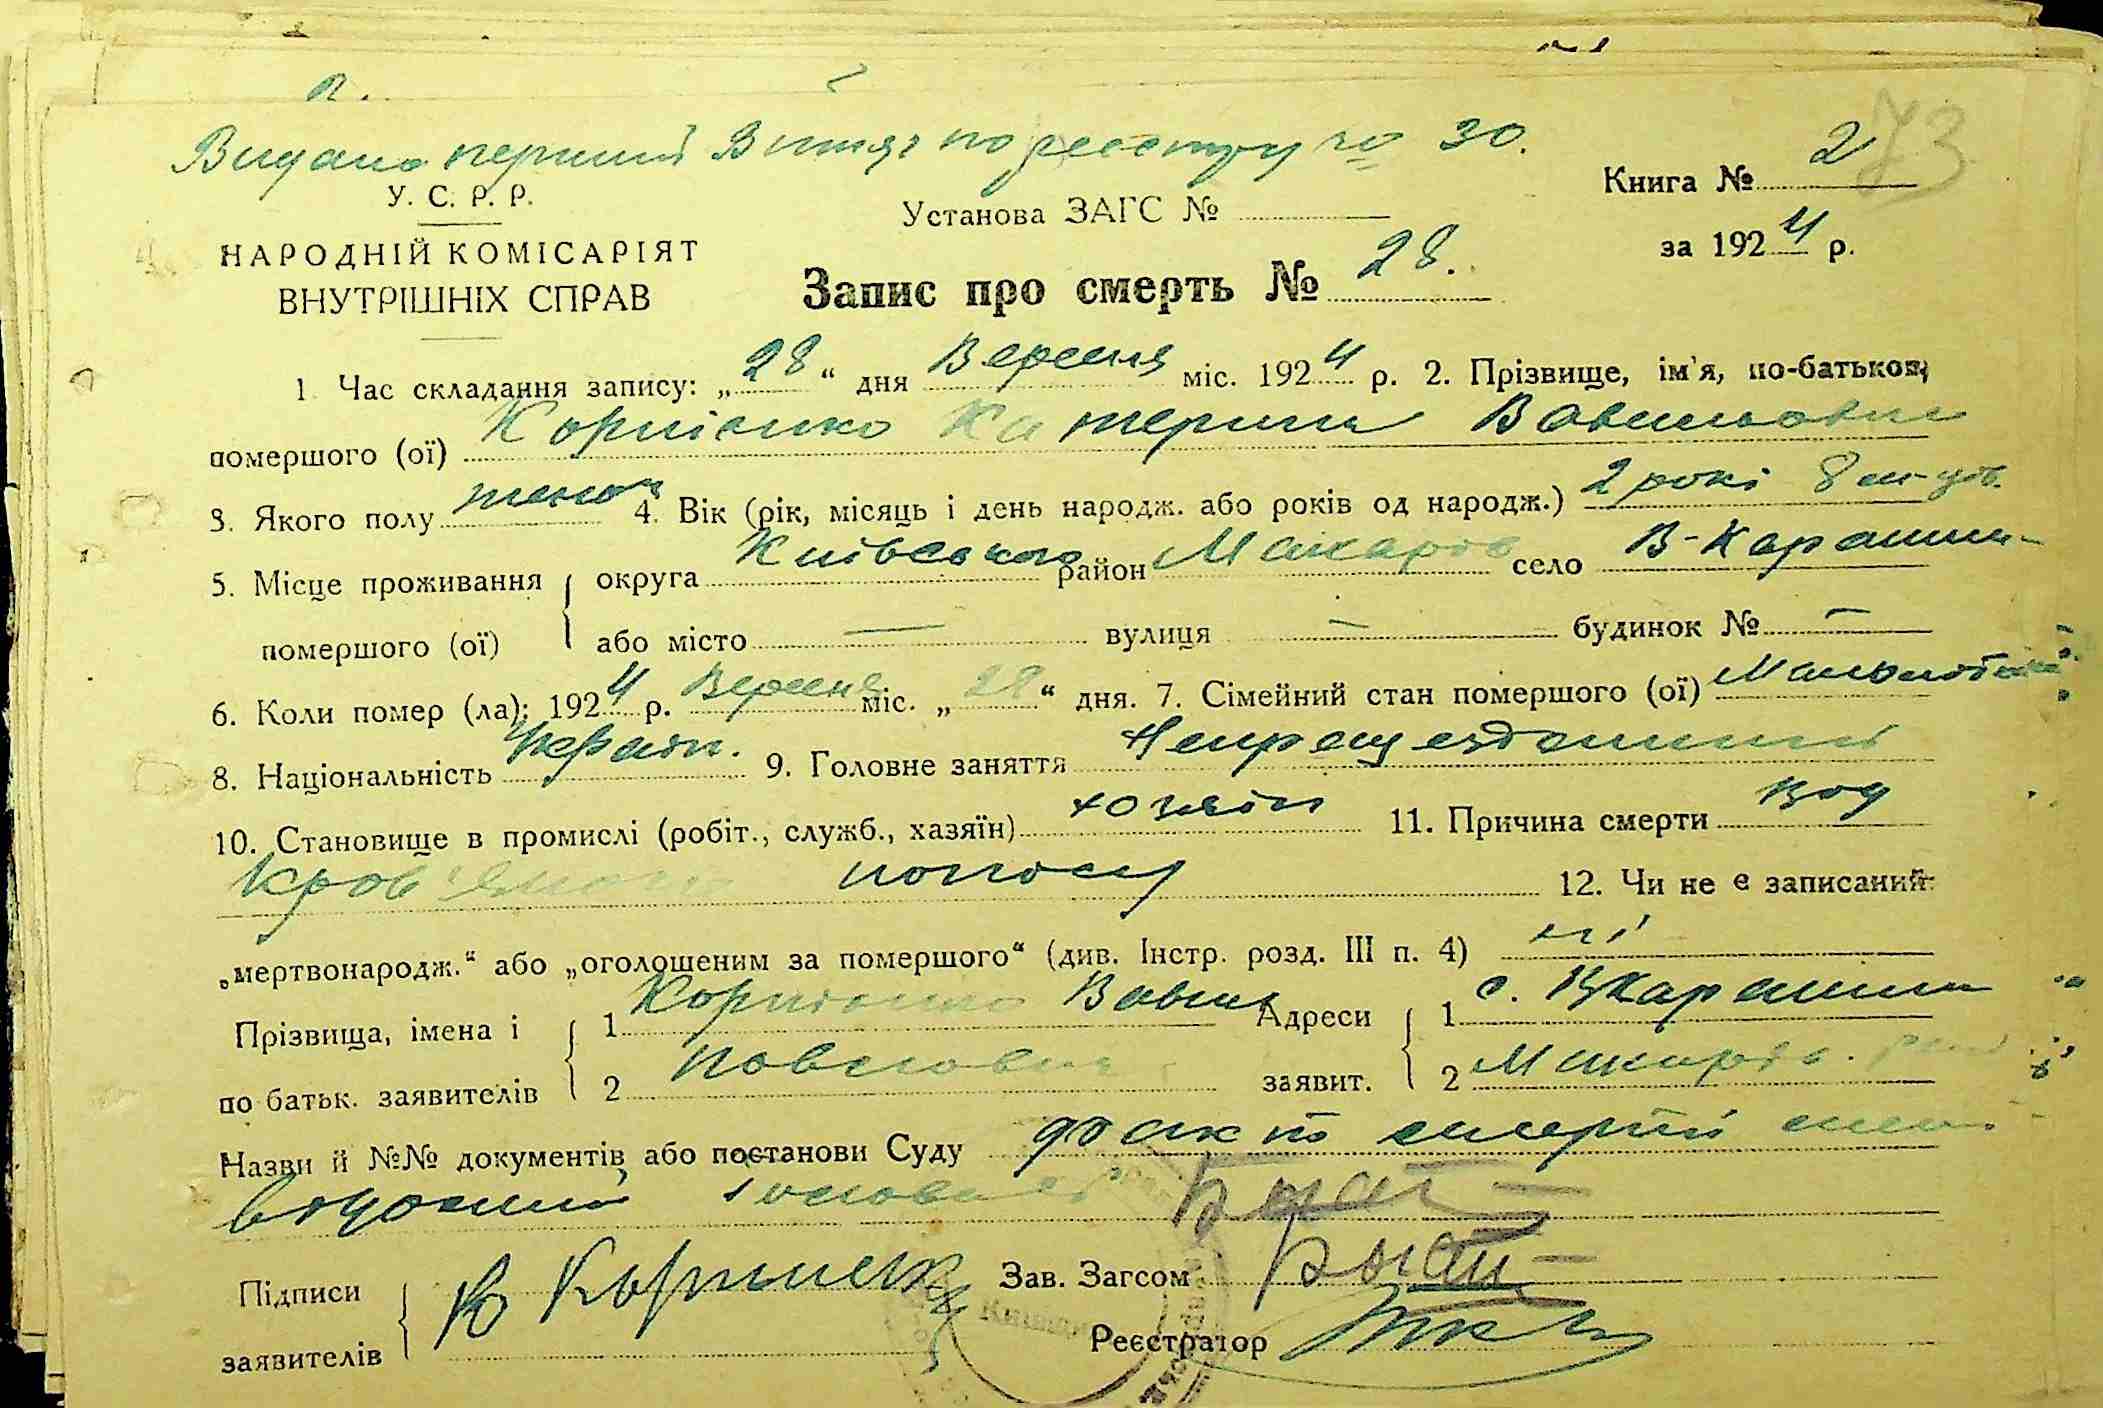 Видано перший Витяг по реєстру № 30.
73
У. С. Р. Р.
Установа ЗАГС №
Книга № 2
НАРОДНІЙ КОМІСАРІЯТ
ВНУТРІШНІХ СПРАВ
за 1924 р.
Запис про смерть № 28.
1 Час складання запису: „28“ дня Вересня міс. 1924 р. 2. Прізвище, ім'я, по-батькові
помершого (ої) Корнієнко Катерина Вавильовна
3. Якого полу жіноч 4. Вік (рік, місяць і день народж. або років од народж.) 2 рокі 8 м-ців.
5. Місце проживання округа Київського район Макарів село В-Карашин
помершого (ої) або місто — вулиця — будинок № —
6. Коли помер (ла): 1924 р. Вересня міс. „28“ дня. 7. Сімейний стан помершого (ої)
8. Національність Україн. 9. Головне заняття
10. Становище в промислі (робіт., служб., хазяїн) хозяїн 11. Причина смерти від
кров'яного поносу 12. Чи не є записаний
„мертвонародж.“ або „оголошеним за помершого“ (див. Інстр. розд. III п. 4) ні
Прізвища, імена і 1 Корнієнко Вавил Адреси 1 с. ВКарашин
по батьк. заявителів 2 Павлович заявит. 2 Макарів. рай
Назви й №№ документів або постанови Суду факт смерти
Підписи Зав. Загсом
заявителів Реєстратор